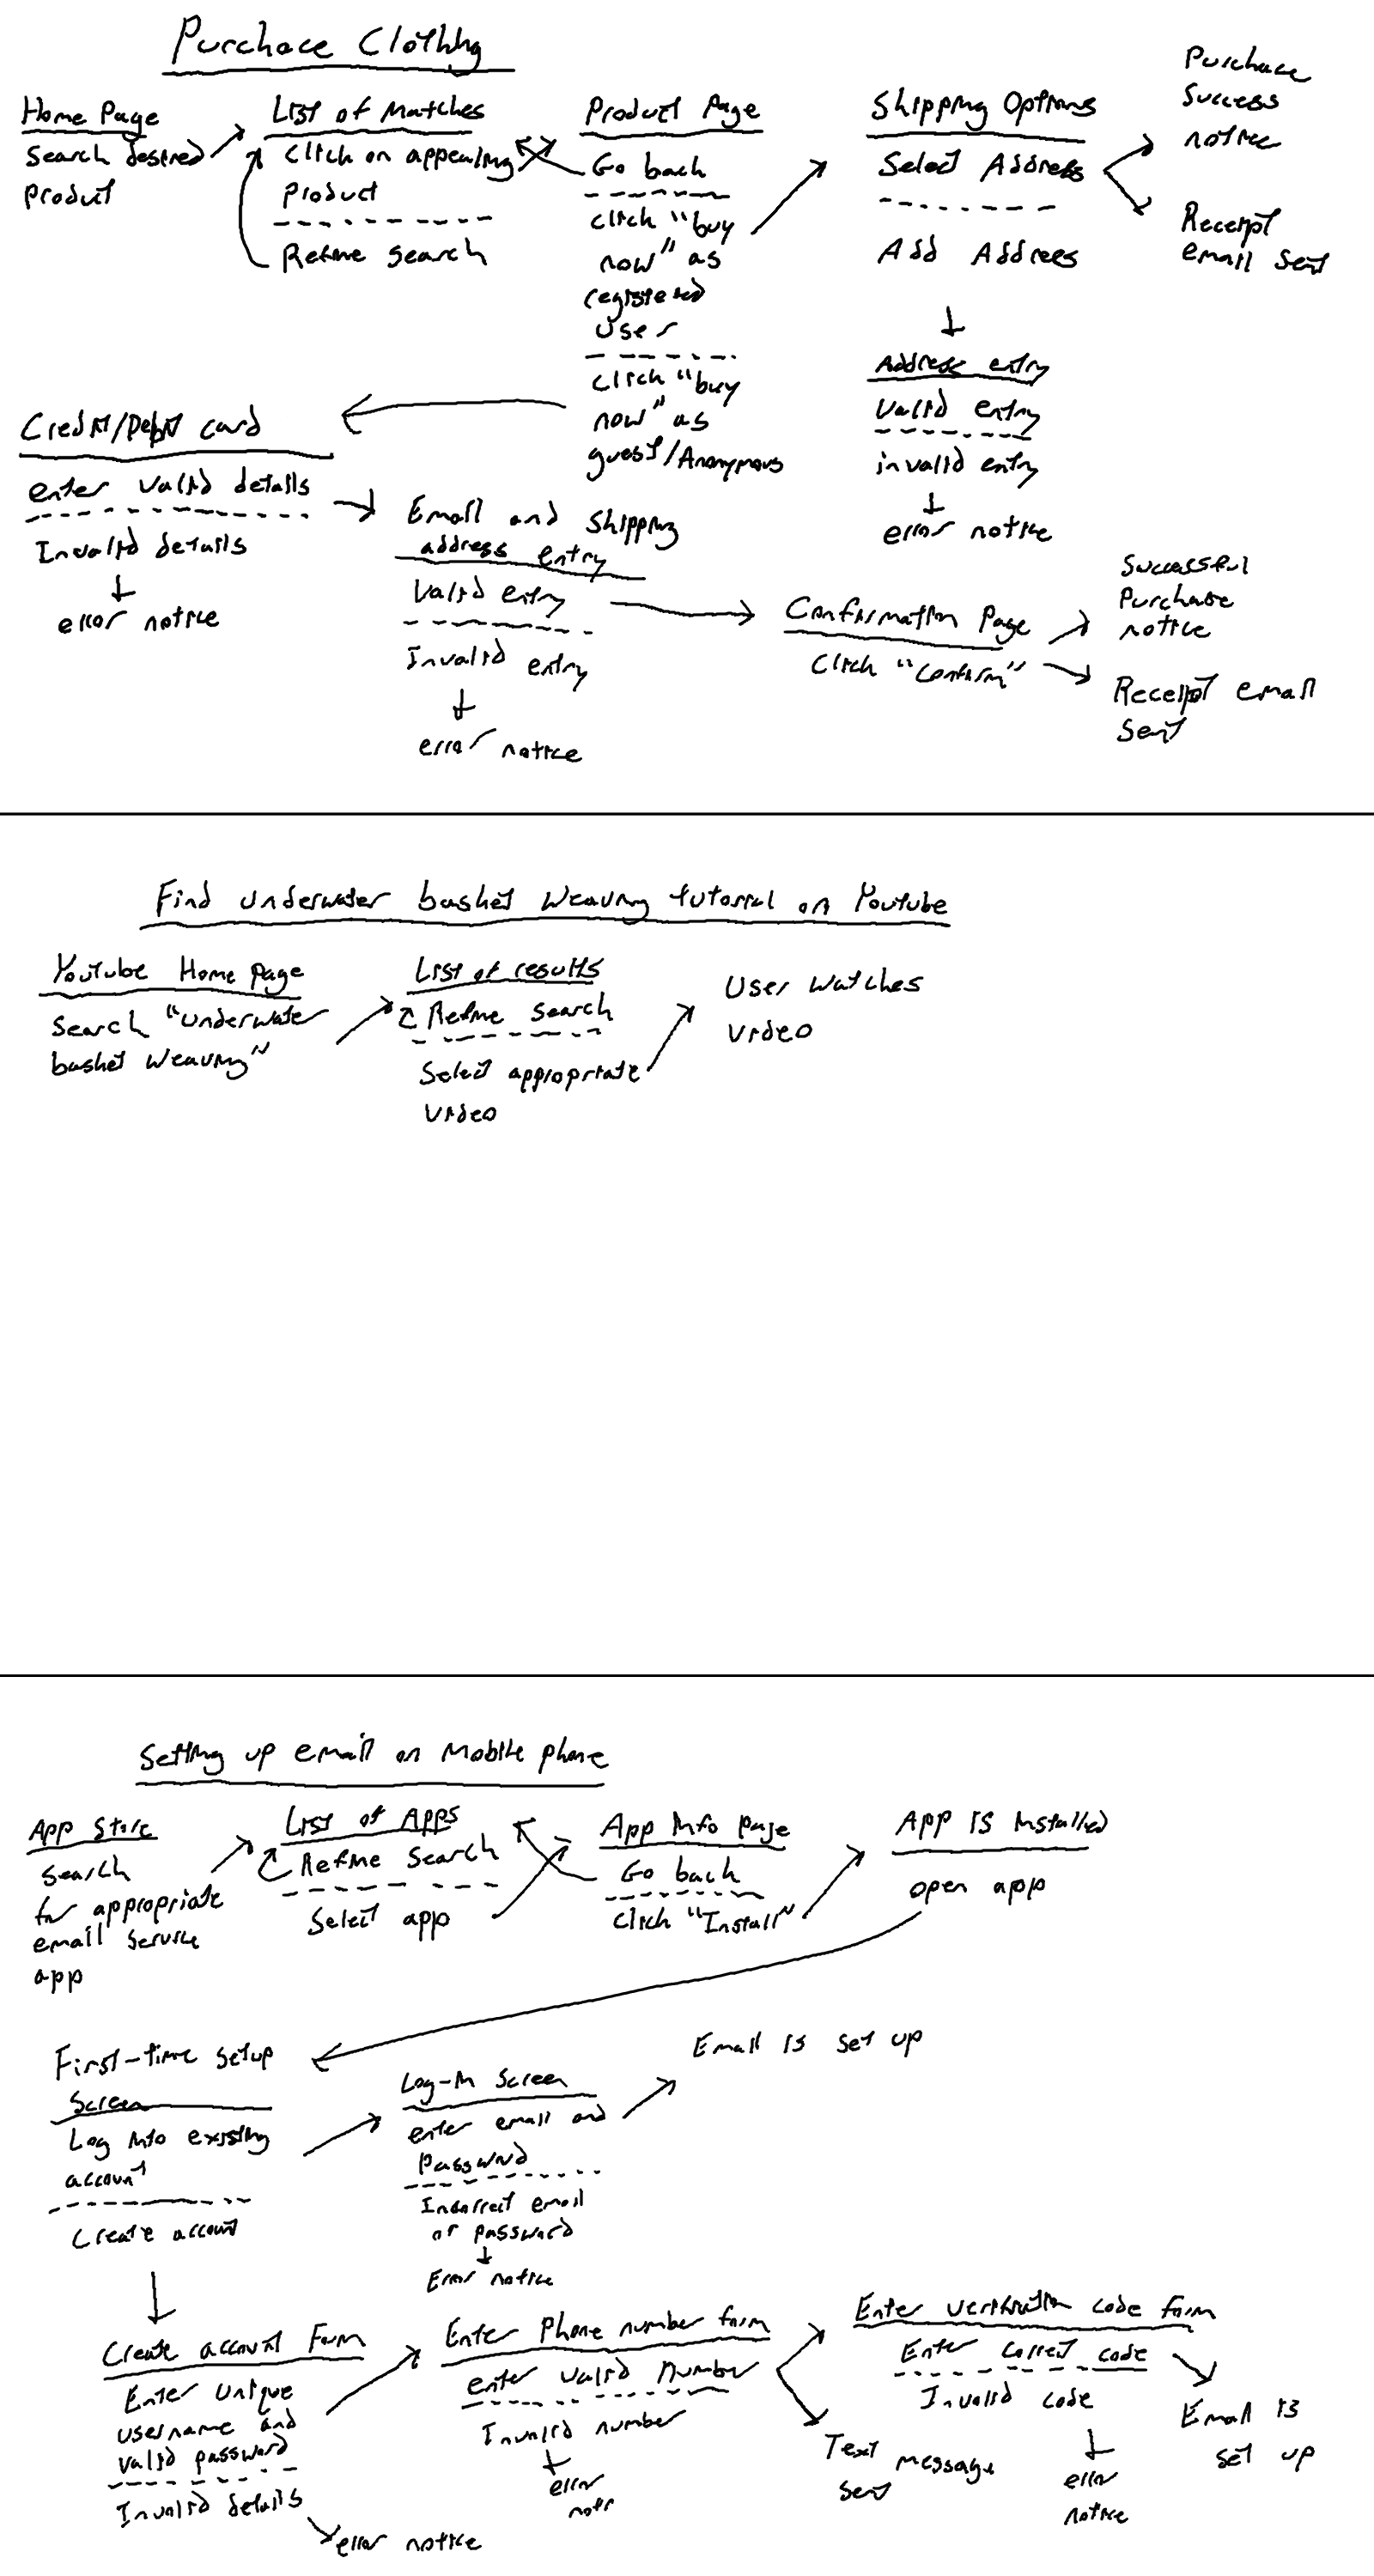 Purchace Clothing
Home Page
Search desired
product
List of Matches
Click on appealing
product
Refine search
Product Page
Go back
click "buy
now" as
registered
user
click "buy
now" as
guest/Anonymous
Shipping Options
Select Address
Add Address
Purchace
Success
notice
Receipt
email sent
Address entry
Valid entry
invalid entry
error notice
Credit/Debit card
enter valid details
Invalid details
error notice
Email and shipping
address entry
Valid entry
Invalid entry
error notice
Confirmation Page
Click "Confirm"
Successful
Purchase
notice
Receipt email
Sent
Find underwater basket weaving tutorial on Youtube
Youtube Home page
Search "underwater
basket weaving"
List of results
Refine search
Select appropriate
video
User watches
video
Setting up email on mobile phone
App Store
Search
for appropriate
email service
app
List of Apps
Refine search
Select app
App info page
Go back
click "Install"
App is installed
open app
First-time setup
Screen
Log into existing
account
Create account
Log-in screen
enter email and
password
Incorrect email
or password
Error notice
Email is set up
Create account Form
Enter unique
username and
valid password
Invalid details
error notice
Enter Phone number form
enter valid number
Invalid number
error
Enter verification code form
Enter correct code
Invalid code
error
notice
Text message
sent
Email is
set up